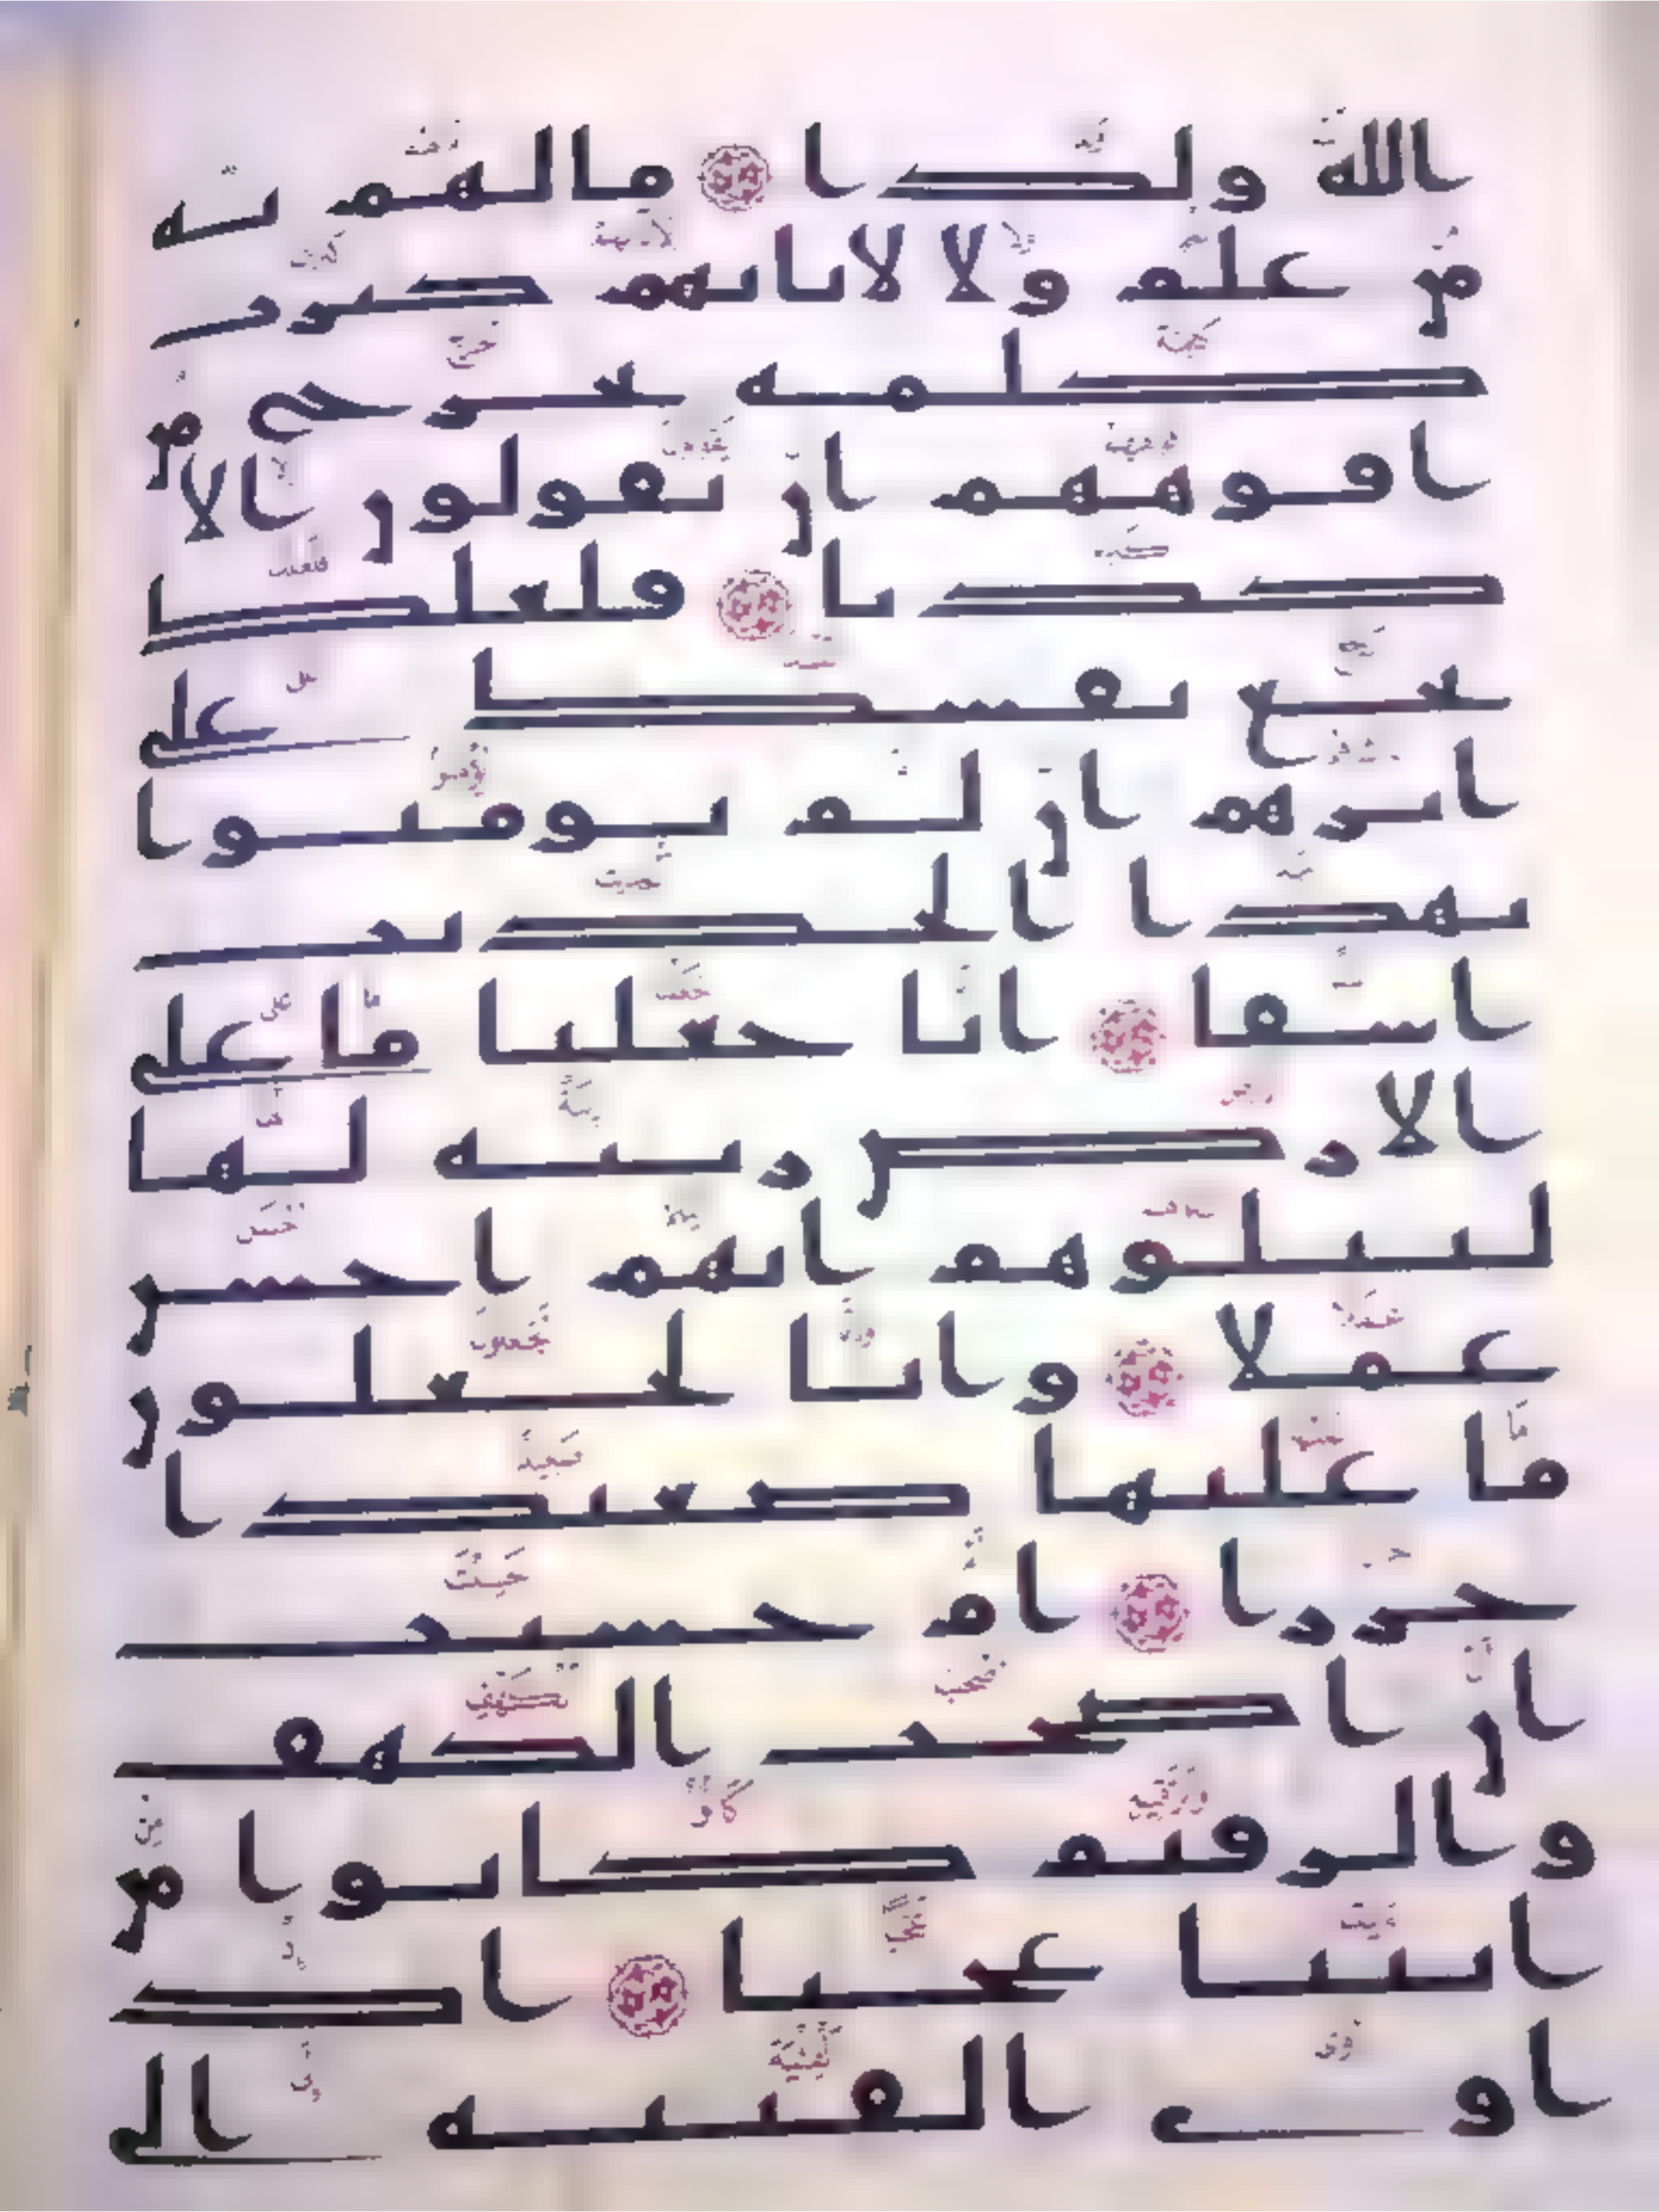 الله ولدا ما لهم به
من علم ولا لابائهم كبرت
كلمة تخرج من
افوههم ان يقولون الا
كذبا فلعلك
بخع نفسك على
اثرهم ان لم يومنوا
بهذا الحديث
اسفا انا جعلنا ما على
الارض زينة لها
لنبلوهم ايهم احسن
عملا وانا لجعلون
ما عليها صعيدا
جرزا ام حسبت
ان اصحب الكهف
والرقيم كانوا من
ايتنا عجبا اذ
اوى الفتية الى